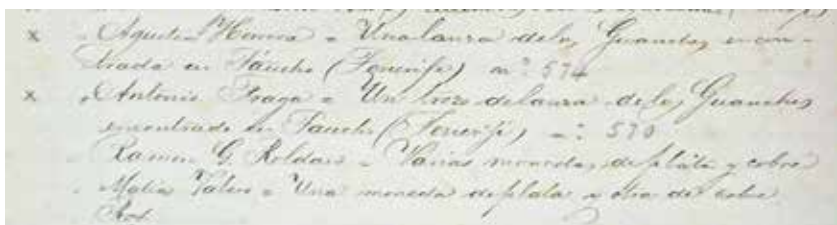 x " Agustin Herrera = Una lanza de los Guanches encon-
trada en Taucho (Tenerife) nº 574
x " Antonio Fraga = Un trozo de lanza de los Guanches
encontrado en Taucho (Tenerife) nº 570
" Ramon G. Roldan = Varias monedas de plata y cobre
" Matia = Una moneda de plata y otra de cobre